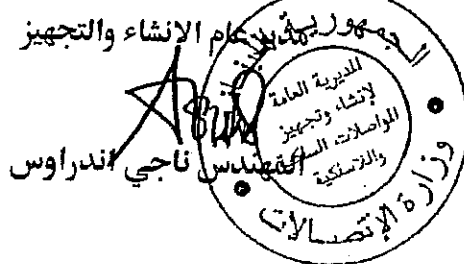 مدير عام الانشاء والتجهيز
المهندس ناجي اندراوس
الجمهورية اللبنانية
المديرية العامة
لإنشاء وتجهيز
المواصلات السلكية
واللاسلكية
وزارة الإتصالات